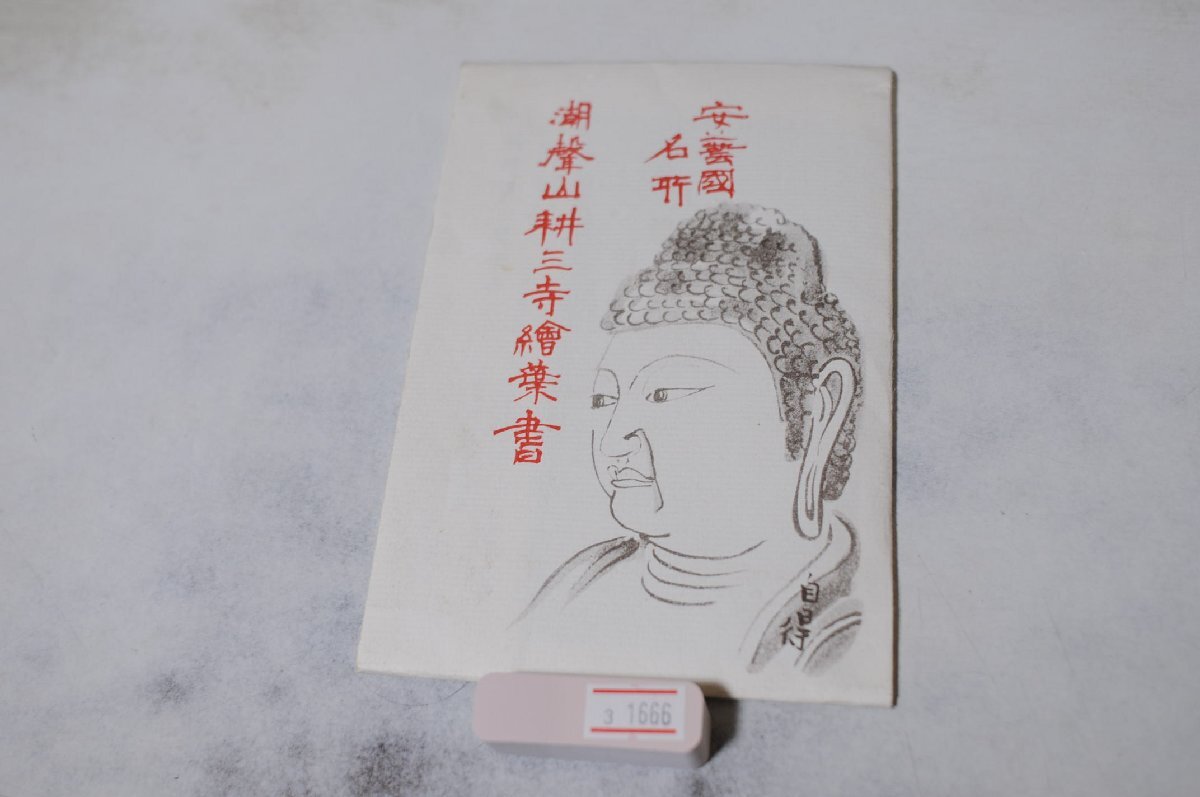 安藝國
名所
潮聲山耕三寺繪葉書
自得
3 1666